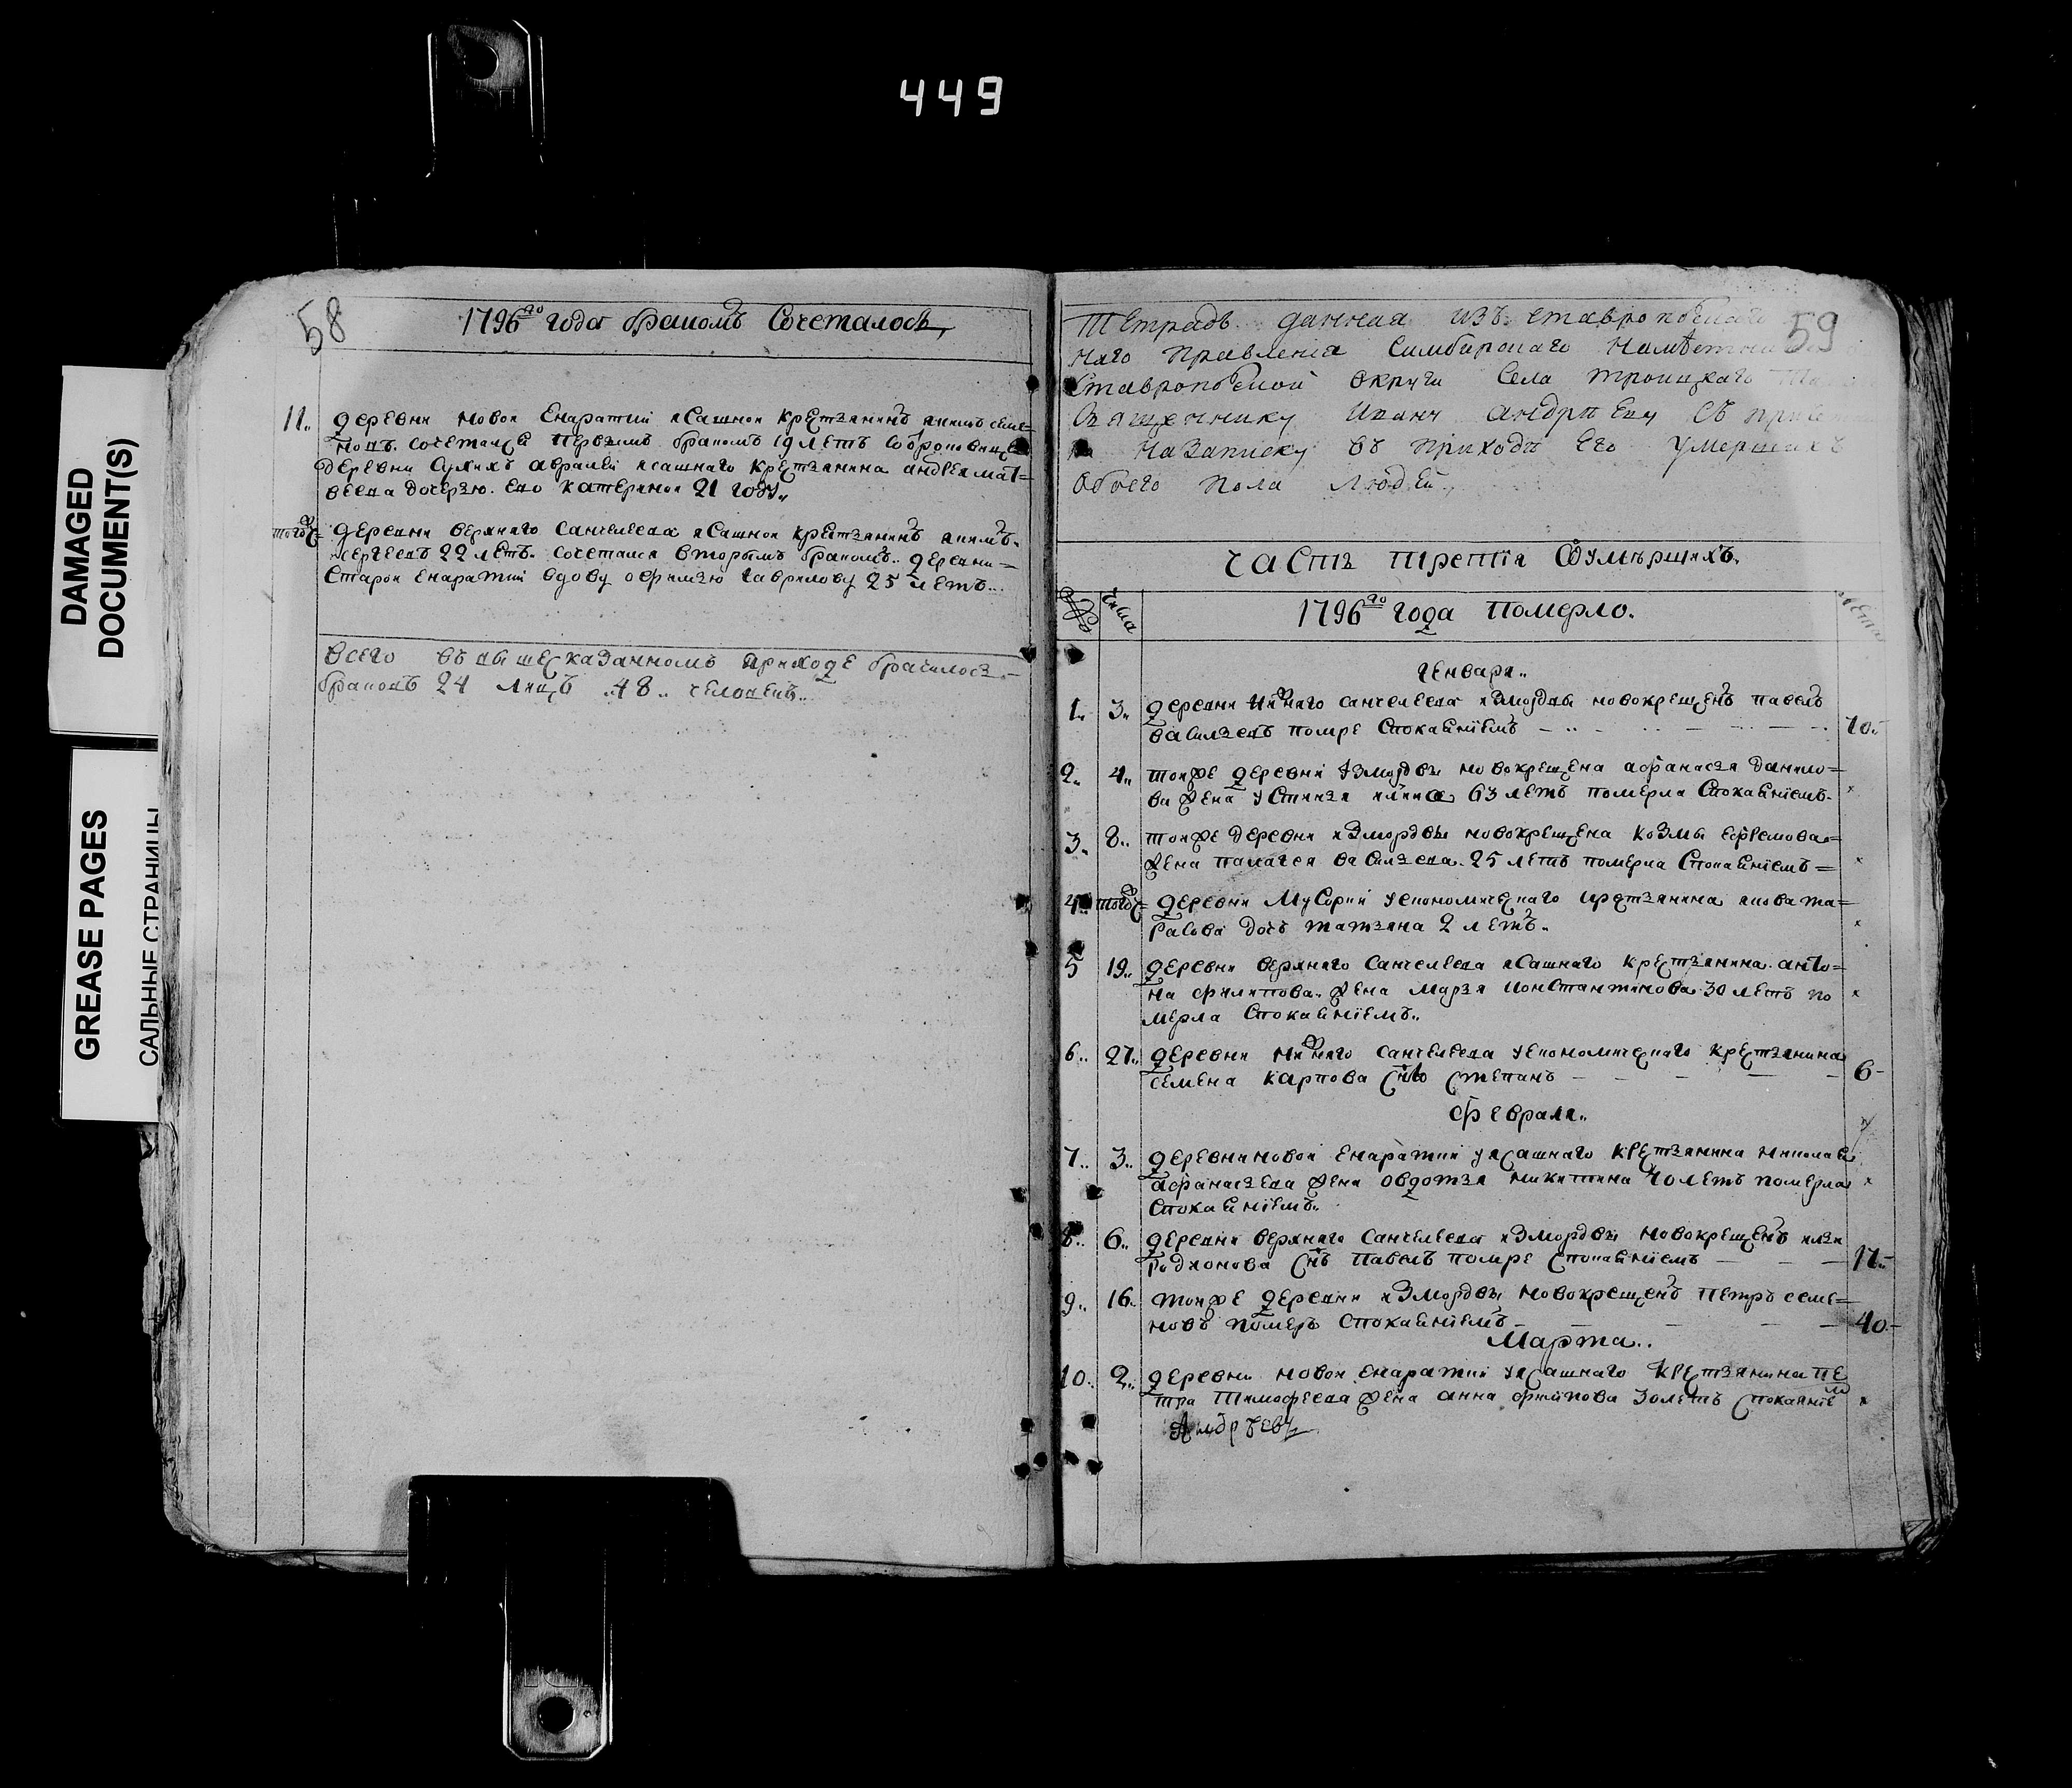 449
DAMAGED
DOCUMENT(S)
GREASE PAGES
САЛЬНЫЕ СТРАНИЦЫ
58
1796го года бракомъ Сочеталось
11.. деревни новои Енаратки ясашнои крестьянинъ
сочетался первымъ бракомъ 19 летъ
деревни ясашнаго крестьянина андрея мат=
веева дочерью. ево катериной 21 году..
тогож деревни верхняго Санчелеева ясашной крестьянинъ якимъ
сергеевъ 22 летъ. сочетался вторымъ бракомъ.. деревни=
Старои Енаратки вдову офимью гаврилову 25 летъ...
Всего въ вышесказанномъ приходе брачилось
браковъ 24 лицъ ..48.. человекъ..
59
Тетрадь данная изъ ставропольскаго
наго Правления Симбирскаго
Ставропольской округи Села троицкаго
Священнику Ивану андрееву съ
на Записку въ приходе Его умершихъ
Обоего пола людей.
Часть третiя Оумершихъ.
числа
лета
1796го года померло.
генваря..
1.. 3.. деревни нижняго санчелеева измордвы новокрещенъ павелъ
васильевъ помре Спокаянiемъ 70..
2.. 4.. тоиже деревни измордвы новокрещена афанасья данило=
ва жена устинья 63 летъ померла Спокаянiемъ.
3. 8.. тоиже деревни измордвы новокрещена козмы ефремова=
жена палагея васильева 25 летъ померла Спокаянiемъ=
4. тогож= деревни Мусорки экономическаго крестьянина якова та=
расова дочь татьяна 2 летъ..
5 19.. деревни верхняго Санчелеева ясашнаго крестьянина. анто=
на филипова. жена марья константинова 30 летъ по
мерла Спокаянiемъ..
6.. 27.. деревни нижняго санчелеева экономическаго крестьянина
семена карпова снъ степанъ 6
февраля..
7.. 3.. деревни новои Енаратки уясашнаго крестьянина николая
афанасьева жена овдотья никитина 40 летъ померла
Спокаянiемъ..
8.. 6.. деревни верхняго санчелеева измордвы новокрещенъ илья
родионова снъ павелъ помре спокаянiемъ 17..
9.. 16. тоиже деревни измордвы новокрещенъ петръ семе=
новъ померъ спокаянiемъ 40
Марта..
10.. 2.. деревни новои енаратки уясашнаго крестьянина пе
тра тимофеева жена анна филипова 30 летъ спокаянiем